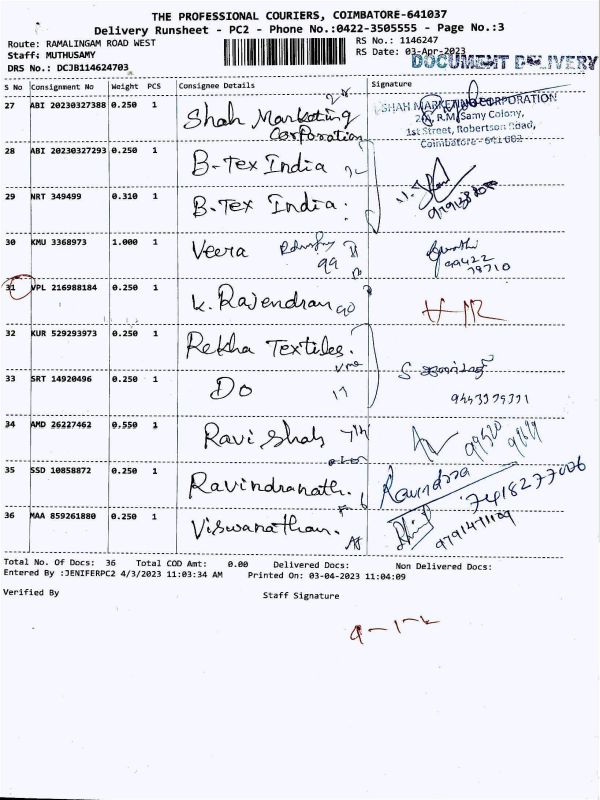 THE PROFESSIONAL COURIERS, COIMBATORE-641037
Delivery Runsheet - PC2 - Phone No.:0422-3505555 - Page No.:3
Route: RAMALINGAM ROAD WEST
Staff: MUTHUSAMY
DRS No.: DCJB114624703
RS No.: 1146247
RS Date: 03-Apr-2023
DOCUMENT DELIVERY
S No Consignment No Weight PCS Consignee Details Signature
27 ABI 20230327388 0.250 1 Shah Marketing Corporation
SHAH MARKETING CORPORATION
R.M. Samy Colony,
1st Street, Robertson Road,
Coimbatore - 641 002
28 ABI 20230327293 0.250 1 B-Tex India
29 NRT 349499 0.310 1 B-Tex India.
30 KMU 3368973 1.000 1 Veera 99
99422
78710
31 VPL 216988184 0.250 1 K. Rajendran
32 KUR 529293973 0.250 1 Rekha Textiles.
33 SRT 14920496 0.250 1 Do 17
34 AMD 26227462 0.550 1 Ravi Shah
35 SSD 10858872 0.250 1 Ravindranath.
Ravindra
7418277006
36 MAA 859261880 0.250 1 Viswanathan.
9791471109
Total No. Of Docs: 36 Total COD Amt: 0.00 Delivered Docs: Non Delivered Docs:
Entered By :JENIFERPC2 4/3/2023 11:03:34 AM Printed On: 03-04-2023 11:04:09
Verified By Staff Signature